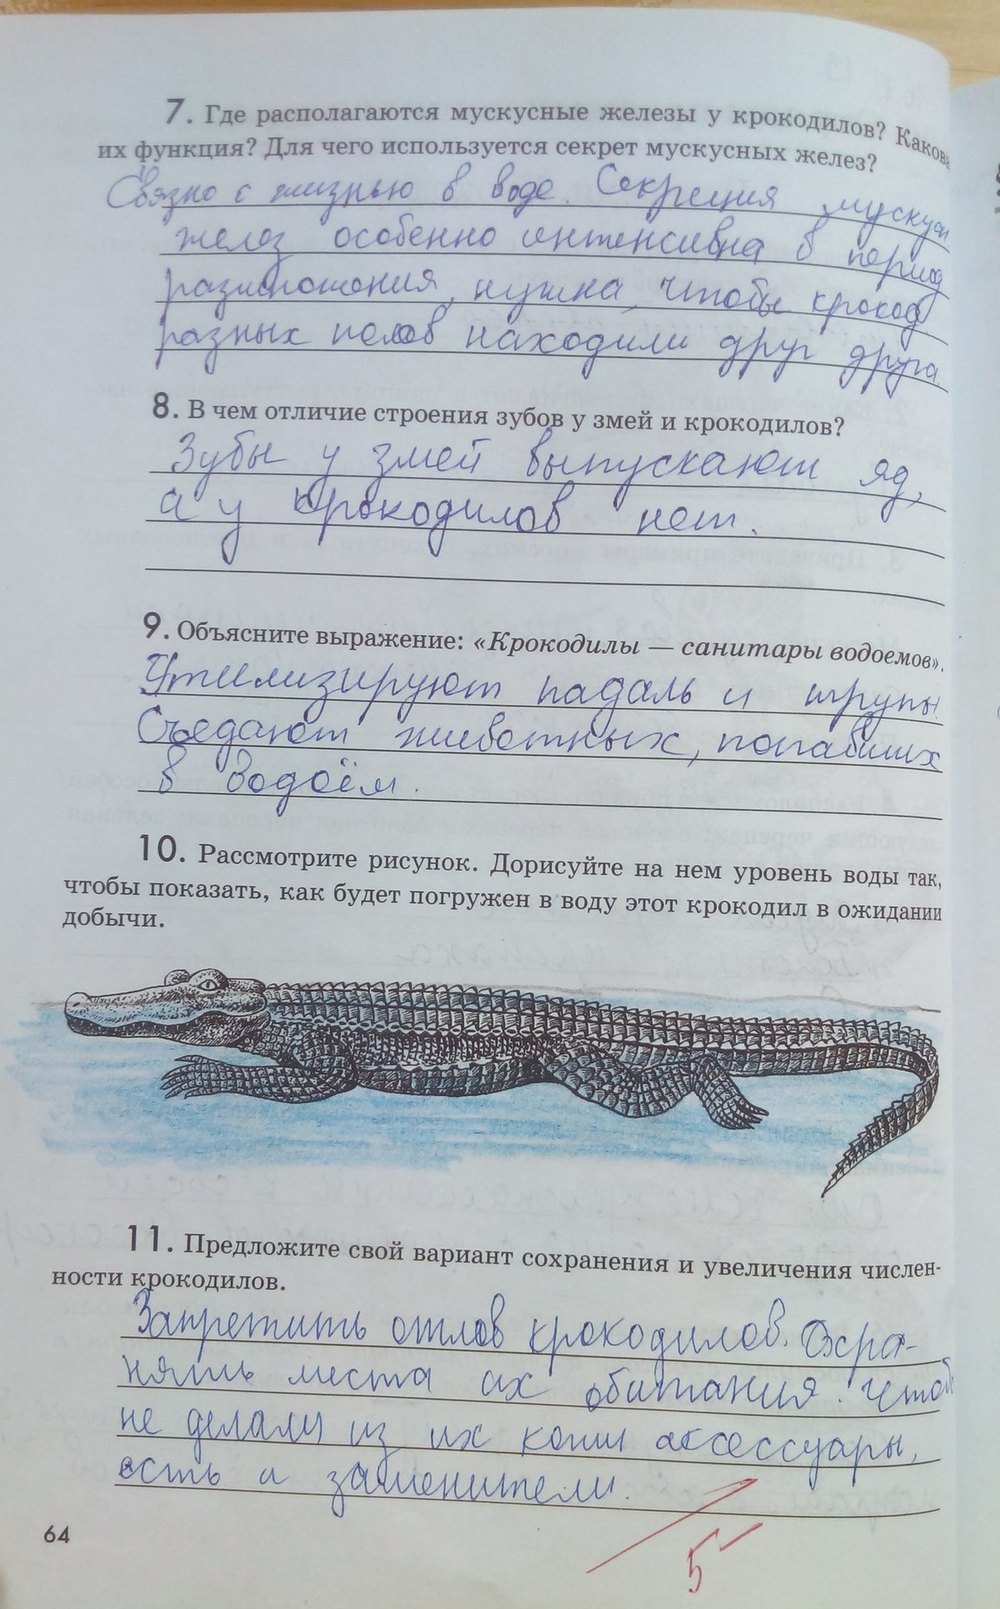 7. Где располагаются мускусные железы у крокодилов? Какова
их функция? Для чего используется секрет мускусных желез?
Связно с жизнью в воде. Секреция мускусн
желез особенно интенсивна в период
размножения, нужна, чтобы крокод
разных полов находили друг друга
8. В чем отличие строения зубов у змей и крокодилов?
Зубы у змей выпускают яд,
а у крокодилов нет.
9. Объясните выражение: «Крокодилы — санитары водоемов».
Утилизируют падаль и трупы.
Съедают животных, попавших
в водоём.
10. Рассмотрите рисунок. Дорисуйте на нем уровень воды так,
чтобы показать, как будет погружен в воду этот крокодил в ожидании
добычи.
11. Предложите свой вариант сохранения и увеличения числен-
ности крокодилов.
Запретить отлов крокодилов. Охра-
нять места их обитания. Чтоб
не делали из их кожи аксессуары,
есть и заменители.
5
64